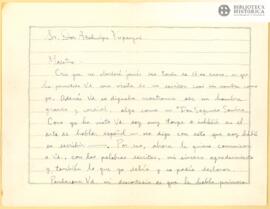 BIBLIOTECA
HISTÓRICA
Sr. Don Atahualpa Yupanqui
Maestro:
Creo que no olvidaré jamás esa tarde de 11 de enero, en que
ha permitido Vd. una visita de un escritor casi sin nombre como
yo. Además Vd. se dignaba mostrarme ser un hombre
grande y cordial, algo como un "Don Segundo Sombra".
Como ya ha visto Vd. soy muy torpe e inhábil en el
arte de hablar español — no digo con esto que soy hábil
en escribir —. Por eso, ahora le quiero comunicar
a Vd., con las palabras escritas, mi sincero agradecimiento
y también lo que yo debía y no podía declarar.
Perdóneme Vd. mi descortesía de que le hable primero